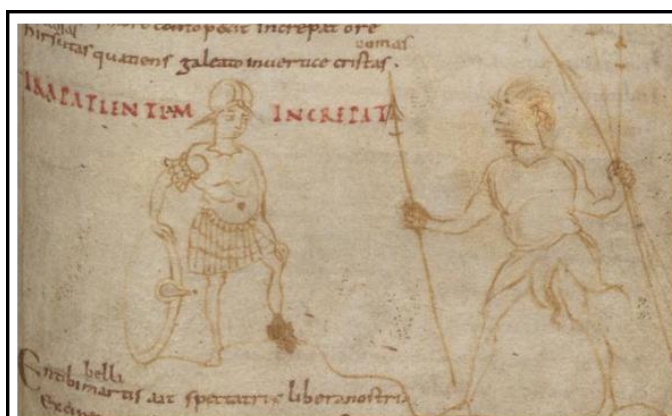 more conto petit increpat ore
comas
hirsutas quatiens galeato in vertice cristas.
IRA PATIENTEM INCREPAT
belli
En tibi martis ait spectatrix libera nostri